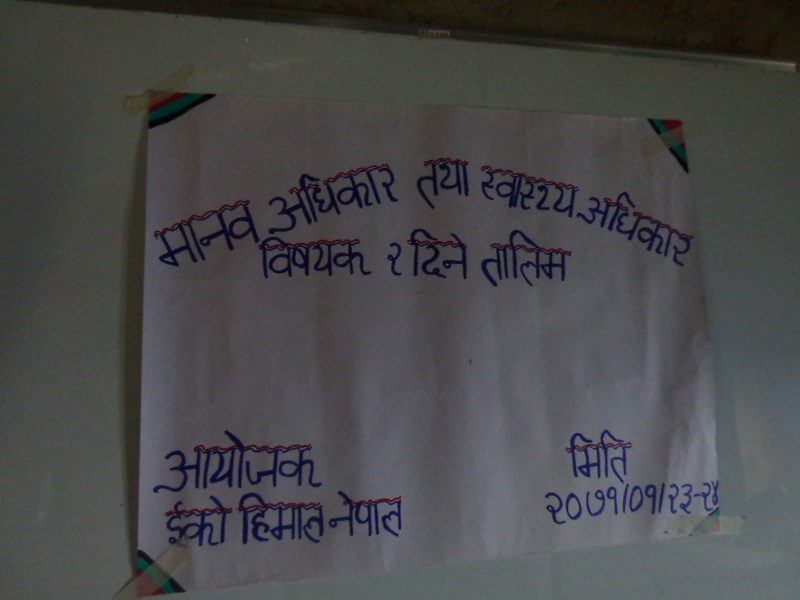 मानव अधिकार तथा स्वास्थ्य अधिकार
विषयक २ दिने तालिम
आयोजक
ईको हिमाल नेपाल
मिति
२०७१/०१/२३-२४